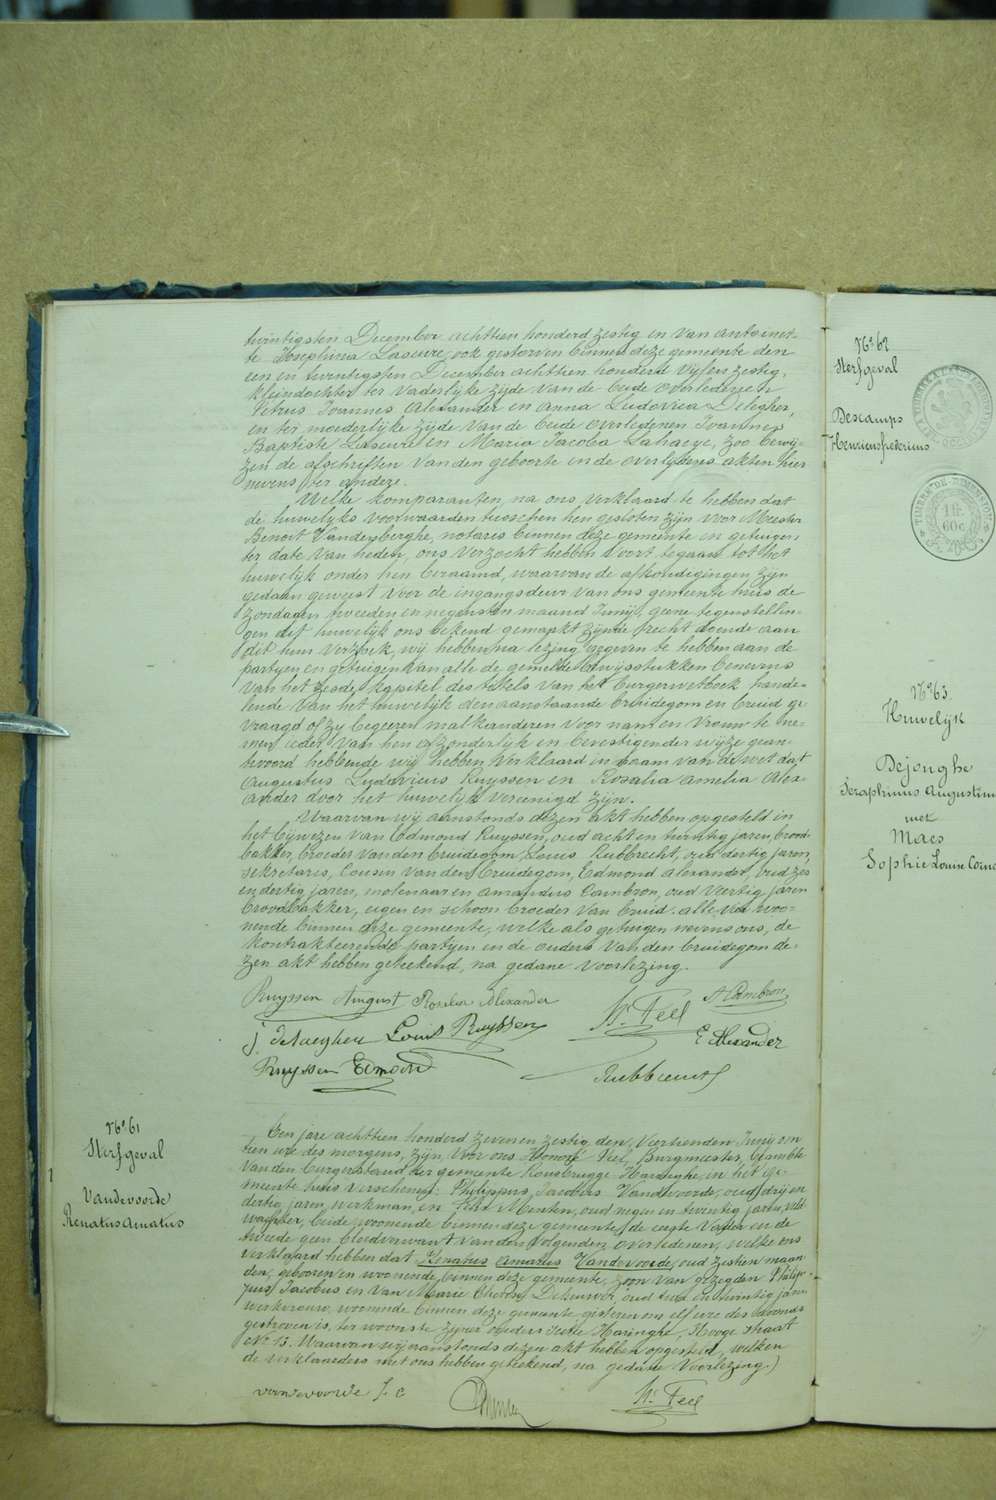 twintigsten December achttien honderd zestig en van Antoinet-
te Josephina Laseure, ook gestorven binnen deze gemeente den
een en twintigsten December achttien honderd vijf en zestig,
kleindochter ter vaderlyke zijde van de beide overledenen
Petrus Joannes Alexander en Anna Ludovica Deleghe,
en ter moederlijke zijde van de beide overledenen Joannes
Baptiste Laseure en Maria Jacoba Lahaeye, zoo bewij-
zen de afschriften van den geboorte en de overlydens akten hier
nevens per andeze.
Welke komparanten, na ons verklaard te hebben dat
de huwelyks voorwaarden tusschen hen gesloten zijn voor Meester
Benoit Vandenberghe, notaris binnen deze gemeente en getuigen,
ter date van heden, ons verzocht hebben voort te gaan tot het
huwelijk onder hen beraamd, waarvan de afkondigingen zijn
gedaan geweest voor de ingangsdeur van ons gemeente huis de
zondagen tweeden en negensten maand Junij, geene tegenstellin-
gen dit huwelijk ons bekend gemaakt zijnde, recht doende aan
dit hun verzoek, wij hebben, na lezing gegeven te hebben aan de
partyen en getuigen van alle de gemelde bewijsstukken benevens
van het zesde kapitel des titels van het burgerwetboek hande-
lende van het huwelijk den aanstaande bruidegom en bruid ge-
vraagd of zy begeeren malkanderen voor man en vrouw te ne-
men, ieder van hen afzonderlijk en bevestigender wijze gean-
twoord hebbende wij hebben verklaard in naam van de wet dat
Augustus Ludovicus Ruyssen en Rosalia Amelia Alex-
ander door het huwelijk vereenigd zijn.
Waarvan wij aanstonds dezen akt hebben opgesteld in
het bijwezen van Edmond Ruyssen, oud acht en twintig jaren, brood-
bakker, broeder van den bruidegom, Louis Rubbrecht, oud dertig jaren,
sekretaris, cousin van den bruidegom, Edmond Alexander, oud zes
en dertig jaren, molenaar en Amandus Cambron, oud veertig jaren
broodbakker, eigen en schoon broeder van bruid. alle vier woo-
nende binnen deze gemeente, welke als getuigen nevens ons, de
kontrakteerende partyen en de ouders van den bruidegom de-
zen akt hebben geteekend, na gedane voorlezing.
Ruyssen August Rosalia Alexander
A Cambron
H. Feel
Louis Ruyssen
E Alexander
Ruyssen Edmond
Rubbrecht
N° 61
Sterfgeval
Vandevoorde
Renatus Amatus
Een jare achttien honderd zeven en zestig den veertienden Junij om
tien ure des morgens, zijn voor ons Honoré Feel, burgmeester, beambte
van den burgerstand der gemeente Rousbrugge-Haringhe, in het ge-
meente huis verschenen: Philippus Jacobus Vandevoorde, oud drij en
dertig jaren, werkman, en Felix Menten, oud negen en twintig jaren, veld-
wachter, beide woonende binnen deze gemeente, de eerste vader en de
tweede geen bloedverwant van den volgenden overledenen, welke ons
verklaard hebben dat Renatus Amatus Vandevoorde, oud zestien maan-
den, geboren en woonende binnen deze gemeente, zoon van gezegden Philip-
pus Jacobus en van Marie oud twee en twintig jaren
werkvrouw, woonende binnen deze gemeente gisteren om elf ure des avonds
gestorven is, ter woonste zijner ouders sectie Haringhe, Hooge straat
N° 15. Waarvan wij aanstonds dezen akt hebben opgesteld, welken
de verklaarders met ons hebben geteekend, na gedane voorlezing.)
vandevoorde J. C
H. Feel
N° 62
Sterfgeval
Descamps
TIMBRE DE DIMENSION
1 fr.
60c
N° 63
Huwelijk
Dejonghe
Seraphinus Augustinu
met
Maes
Sophie Louise Corne